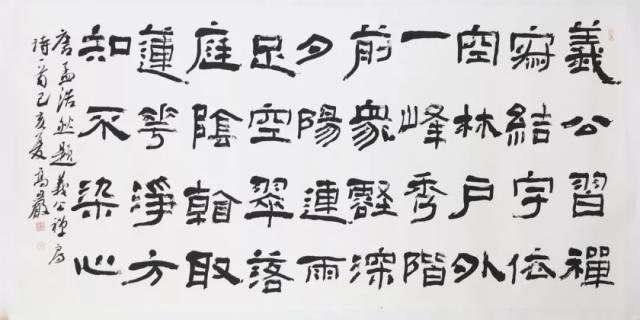 義公習禪
寂結宇依
空林戶外
一峰秀階
前衆壑深
夕陽連雨
足空翠落
庭陰看取
蓮花淨方
知不染心
唐孟浩然題義公禪房
詩一首己亥夏高嚴